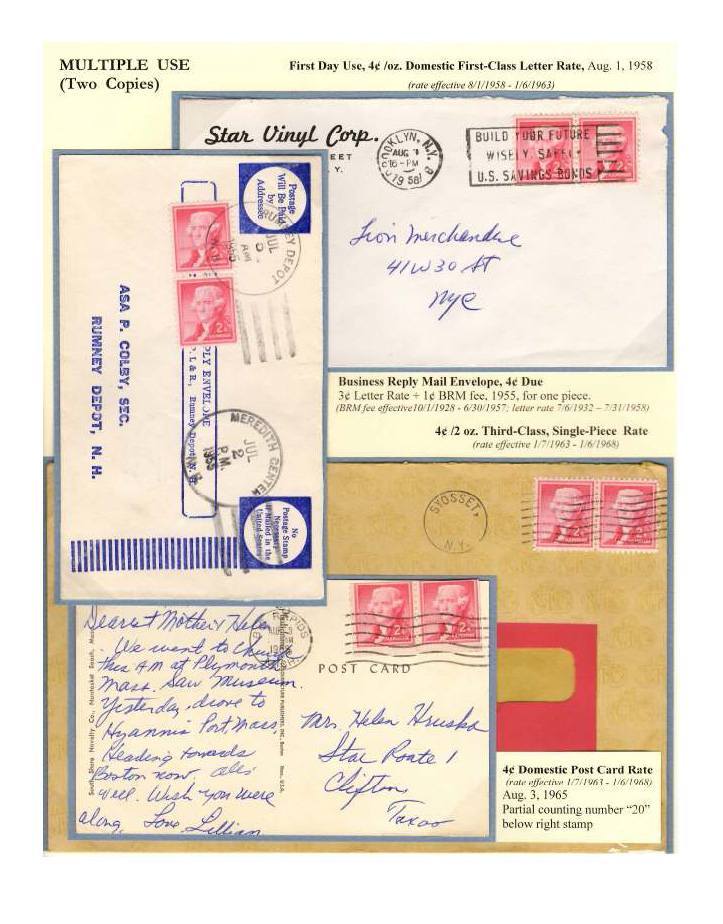 MULTIPLE USE
(Two Copies)
First Day Use, 4¢ /oz. Domestic First-Class Letter Rate, Aug. 1, 1958
(rate effective 8/1/1958 - 1/6/1963)
Star Vinyl Corp.
EET
Y.
BROOKLYN, N.Y.
AUG 1
PM
1958
BUILD YOUR FUTURE
WISELY, SAFELY
U.S. SAVINGS BONDS
2¢
Lion Merchandise
41 W 30 St
Nyc
Postage
Will Be Paid
by
Addressee
RUMNEY DEPOT
JUL
1955
2¢
ASA P. COLBY, SEC.
RUMNEY DEPOT, N. H.
PLY ENVELOPE
P. L & R., Rumney Depot, N. H.
MEREDITH CENTER
JUL
2
P.M.
1955
N.H.
No
Postage Stamp
Necessary
If Mailed in the
United States
Business Reply Mail Envelope, 4¢ Due
3¢ Letter Rate + 1¢ BRM fee, 1955, for one piece.
(BRM fee effective10/1/1928 - 6/30/1957; letter rate 7/6/1932 – 7/31/1958)
4¢ /2 oz. Third-Class, Single-Piece Rate
(rate effective 1/7/1963 - 1/6/1968)
SYOSSET,
N.Y.
2¢
2¢
Dearest Mother & Helen
We went to Church
this AM at Plymouth
Mass. Saw Museum.
Yesterday, drove to
Hyannis Port, Mass.
Heading towards
Boston now. All's
well. Wish you were
along, Love, Lillian
South Shore Novelty Co., Nantasket Beach, Mass.
RAPIDS
2¢
2¢
POST CARD
Mrs. Helen Hruska
Star Route 1
Clifton
Texas
4¢ Domestic Post Card Rate
(rate effective 1/7/1963 - 1/6/1968)
Aug. 3, 1965
Partial counting number “20”
below right stamp